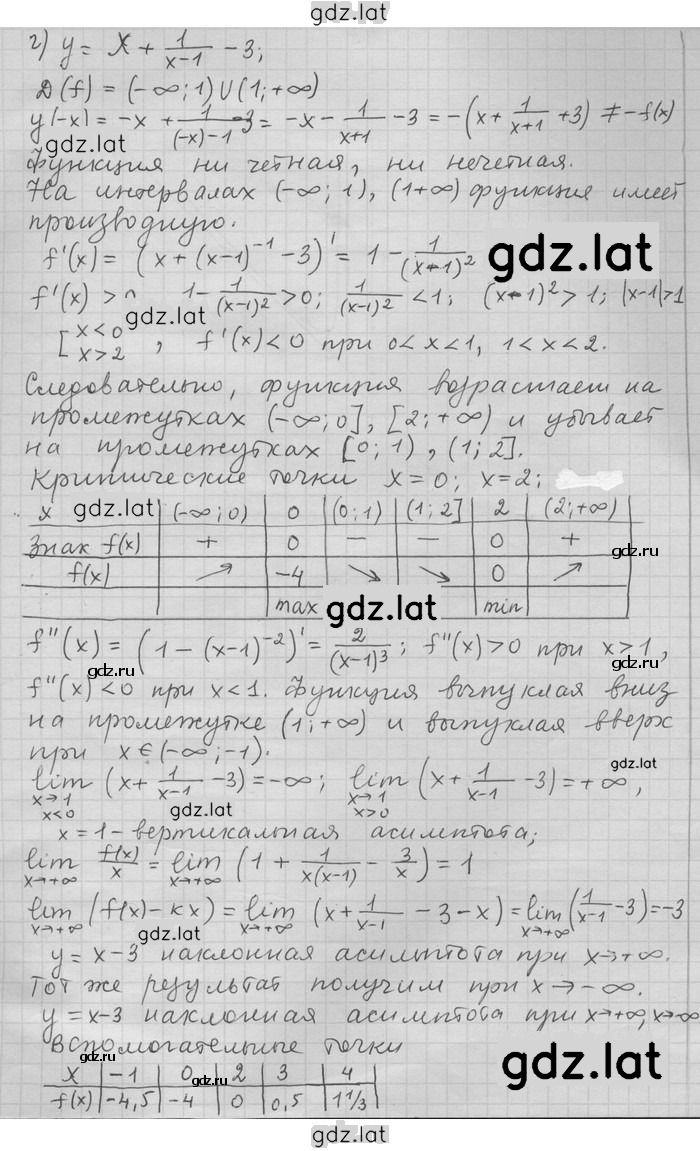 gdz.lat
г) y = x + 1/(x-1) - 3;
D(f) = (-∞; 1) ∪ (1; +∞)
y(-x) = -x + 1/((-x)-1) - 3 = -x - 1/(x+1) - 3 = -(x + 1/(x+1) + 3) ≠ -f(x)
gdz.lat
Функция ни четная, ни нечетная.
На интервалах (-∞; 1), (1+∞) функция имеет
производную.
gdz.lat
f'(x) = (x + (x-1)^-1 - 3)' = 1 - 1/(x-1)^2
f'(x) > 0 1 - 1/(x-1)^2 > 0; 1/(x-1)^2 < 1; (x-1)^2 > 1; |x-1|>1
gdz.lat
[x<0 x>2, f'(x) < 0 при 0<x<1, 1<x<2.
Следовательно, функция возрастает на
промежутках (-∞; 0], [2; +∞) и убывает
на промежутках [0; 1), (1; 2].
Критические точки x = 0; x = 2;
x gdz.lat (-∞; 0) 0 (0; 1) (1; 2] 2 (2; +∞)
Знак f(x) + 0 — — 0 + gdz.ru
f(x) ↗ -4 ↘ ↘ 0 ↗
max gdz.lat min
f''(x) = (1 - (x-1)^-2)' = 2/(x-1)^3; f''(x) > 0 при x > 1,
gdz.ru
f''(x) < 0 при x < 1. Функция выпуклая вниз
на промежутке (1; +∞) и выпуклая вверх
при x ∈ (-∞; -1).
gdz.lat
lim x→1 x<0 (x + 1/(x-1) - 3) = -∞; lim x→1 x>0 (x + 1/(x-1) - 3) = +∞,
gdz.lat
x = 1 - вертикальная асимптота;
lim x→+∞ f(x)/x = lim x→+∞ (1 + 1/(x(x-1)) - 3/x) = 1
lim x→+∞ (f(x) - kx) = lim x→+∞ (x + 1/(x-1) - 3 - x) = lim x→+∞ (1/(x-1) - 3) = -3
gdz.lat
y = x-3 наклонная асимптота при x→+∞.
Тот же результат получим при x → -∞.
y = x-3 наклонная асимптота при x→+∞, x→-∞
Вспомогательные точки
gdz.lat
x -1 0 2 3 4
gdz.ru
f(x) -4,5 -4 0 0,5 1 1/3
gdz.lat